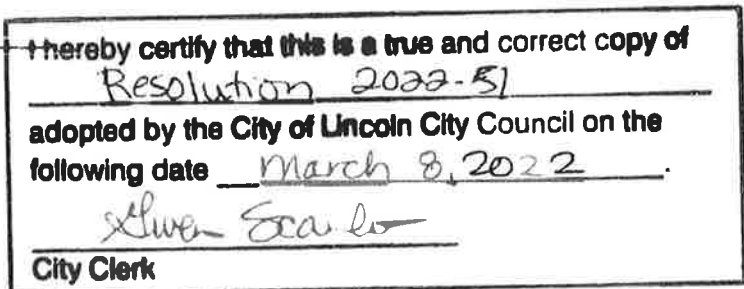 I hereby certify that this is a true and correct copy of
Resolution 2022-51
adopted by the City of Lincoln City Council on the
following date March 8, 2022.
Gwen
City Clerk